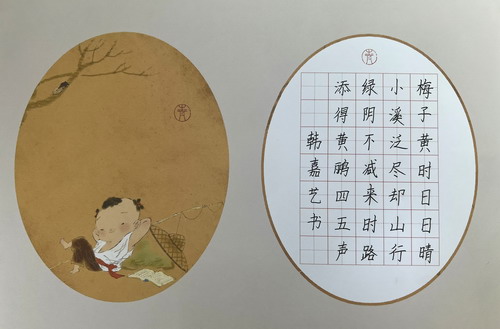 梅子黄时日日晴
小溪泛尽却山行
绿阴不减来时路
添得黄鹂四五声
韩嘉艺书